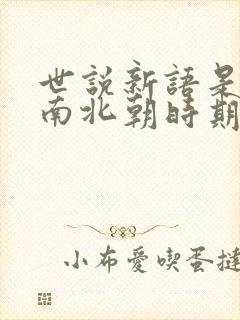 世説新語是
南北朝時期
小布愛喫蛋撻